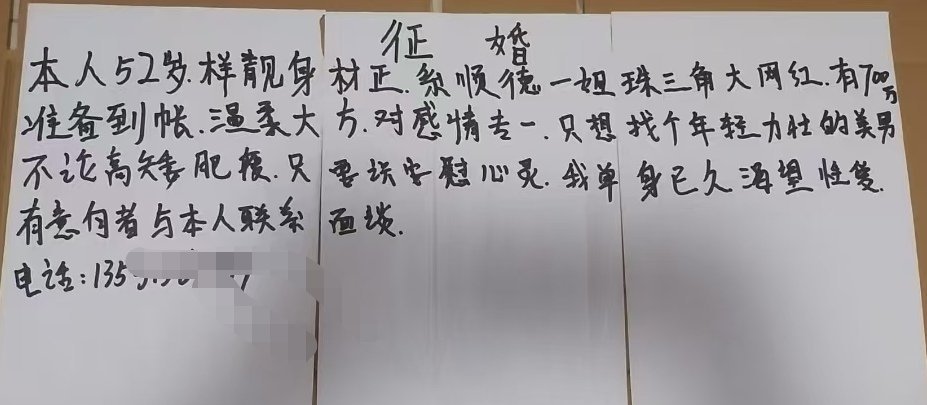 征 婚
本人52岁.样靓身材正.系顺德一姐珠三角大网红.有700万
准备到帐.温柔大方.对感情专一.只想找个年轻力壮的美男
不论高矮肥瘦.只要安慰心灵.我单身已久渴望性爱.
有意向者与本人联系面谈.
电话:135